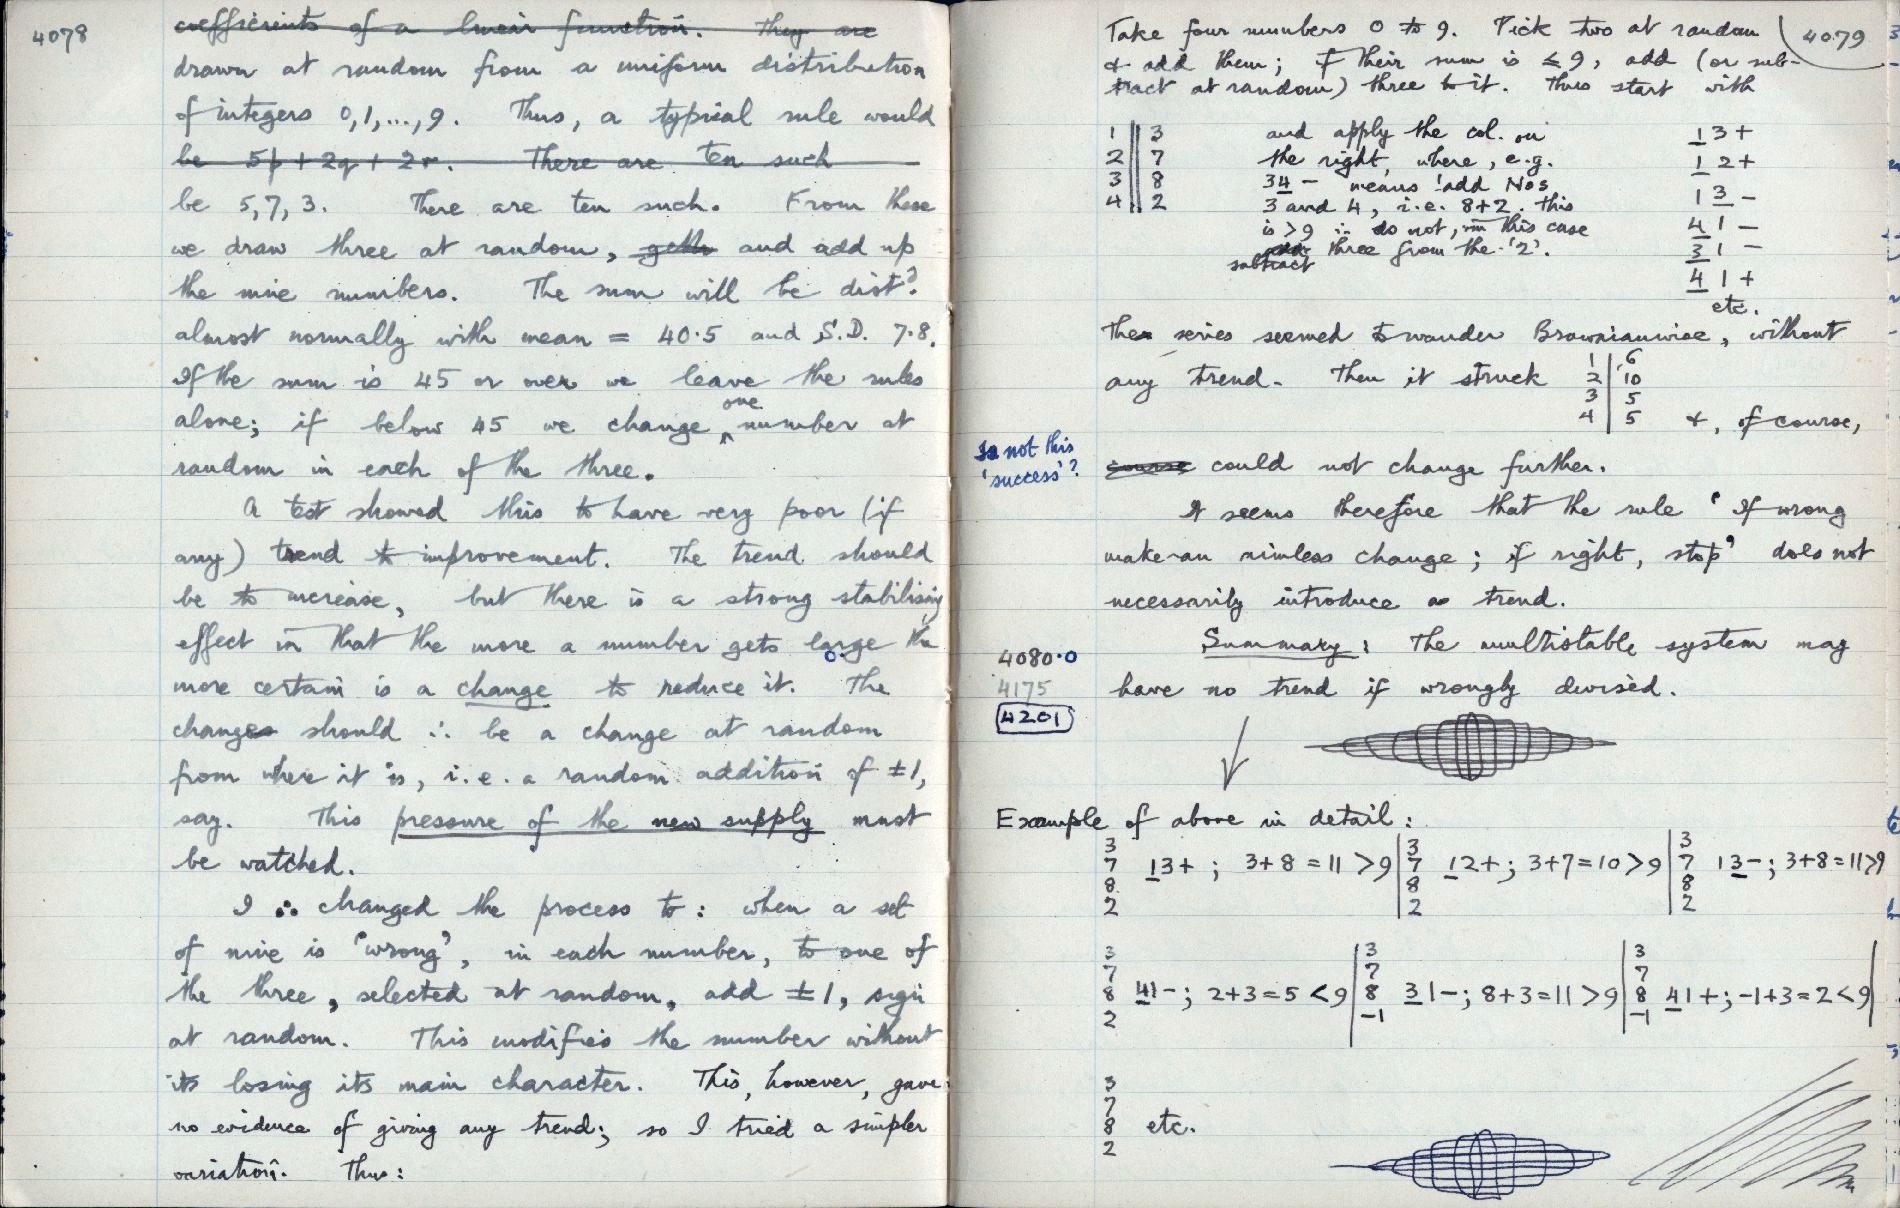 4078
coefficients of a linear function. They are
drawn at random from a uniform distribution
of integers 0,1,...,9. Thus, a typical rule would
be 5p + 2q + 2r. There are ten such
be 5,7,3. There are ten such. From these
we draw three at random, and add up
the nine numbers. The sum will be dist?
almost normally with mean = 40·5 and S.D. 7·8.
If the sum is 45 or over we leave the rules
alone; if below 45 we change one number at
random in each of the three.
A test showed this to have very poor (if
any) trend to improvement. The trend should
be to increase, but there is a strong stabilising
effect in that the more a number gets large the
more certain is a change to reduce it. The
changes should ∴ be a change at random
from where it is, i.e. a random addition of ±1,
say. This pressure of the new supply must
be watched.
I ∴ changed the process to: when a set
of nine is "wrong", in each number, to one of
the three, selected at random, add ±1, sign
at random. This modifies the number without
its losing its main character. This, however, gave
no evidence of giving any trend; so I tried a simpler
variation. Thus:
4079
Take four numbers 0 to 9. Pick two at random
& add them; if their sum is ≤ 9, add (or sub-
tract at random) three to it. Thus start with
1 || 3 and apply the col. on 13+
2 || 7 the right, where, e.g. 12+
3 || 8 34 - means 'add Nos 13-
4 || 2 3 and 4, i.e. 8+2. This 41-
is >9 ∴ do not, in this case 31-
subtract three from the '2'. 41+
etc.
The series seemed to wander Brownianwise, without
any trend. Then it struck
1 | 6
2 | 10
3 | 5
4 | 5 &, of course,
Is not this
'success'?
course could not change further.
It seems therefore that the rule "If wrong
make an aimless change; if right, stop" does not
necessarily introduce a trend.
Summary: The multistable system may
have no trend if wrongly devised.
4080·0
4175
4201
Example of above in detail:
3 7 8 2 13+; 3+8=11>9 | 3 7 8 2 12+; 3+7=10>9 | 3 7 8 2 13-; 3+8=11>9
3 7 8 2 41-; 2+3=5<9 | 3 7 8 -1 31-; 8+3=11>9 | 3 7 8 -1 41+; -1+3=2<9 |
3 7 8 2 etc.